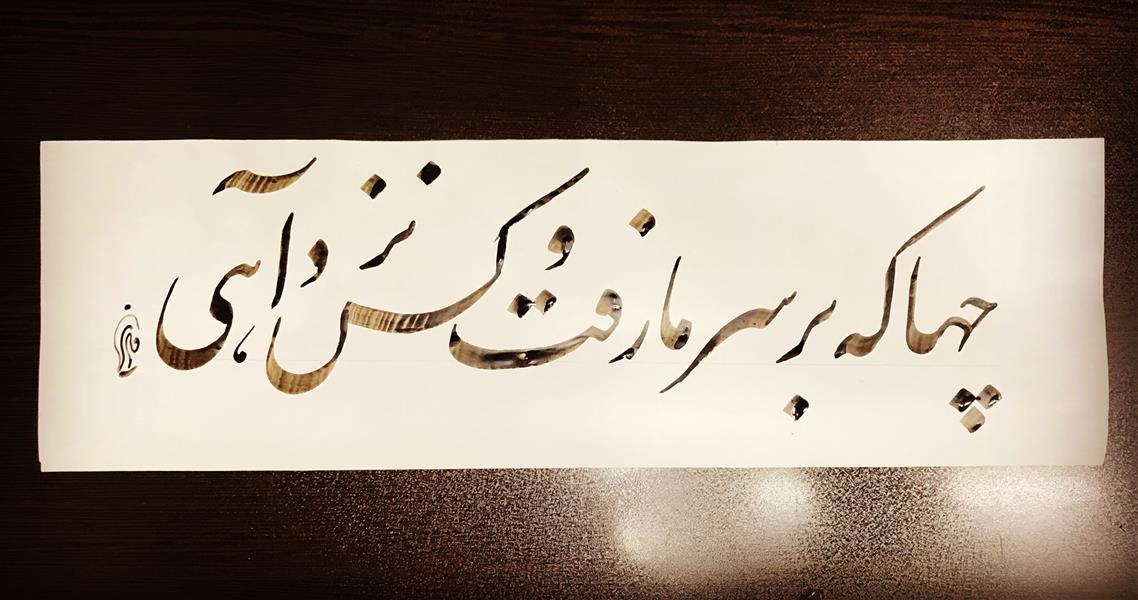 چها که بر سر ما رفت و کس نزد آهی